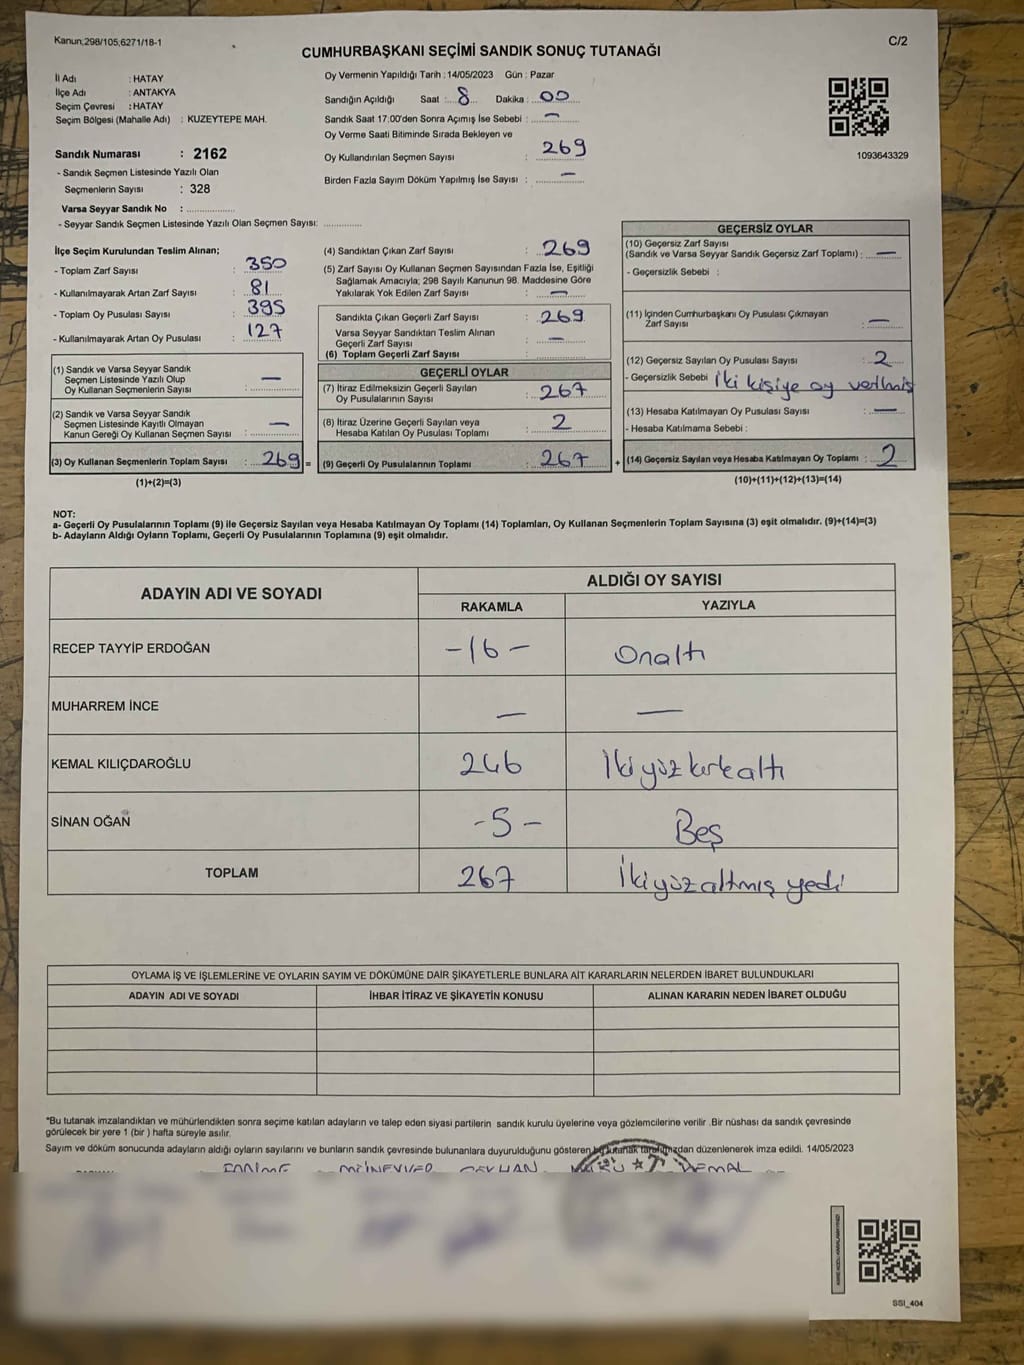 Kanun;298/105,6271/18-1
C/2
CUMHURBAŞKANI SEÇİMİ SANDIK SONUÇ TUTANAĞI
İl Adı : HATAY
İlçe Adı : ANTAKYA
Seçim Çevresi : HATAY
Seçim Bölgesi (Mahalle Adı) : KUZEYTEPE MAH.
Sandık Numarası : 2162
- Sandık Seçmen Listesinde Yazılı Olan
Seçmenlerin Sayısı : 328
Varsa Seyyar Sandık No :
- Seyyar Sandık Seçmen Listesinde Yazılı Olan Seçmen Sayısı:
Oy Vermenin Yapıldığı Tarih : 14/05/2023 Gün : Pazar
Sandığın Açıldığı Saat : 8 Dakika : 00
Sandık Saat 17:00'den Sonra Açımış İse Sebebi : —
Oy Verme Saati Bitiminde Sırada Bekleyen ve
Oy Kullandırılan Seçmen Sayısı : 269
Birden Fazla Sayım Döküm Yapılmış İse Sayısı : —
1093643329
İlçe Seçim Kurulundan Teslim Alınan;
- Toplam Zarf Sayısı : 350
- Kullanılmayarak Artan Zarf Sayısı : 81
- Toplam Oy Pusulası Sayısı : 395
- Kullanılmayarak Artan Oy Pusulası : 127
(1) Sandık ve Varsa Seyyar Sandık
Seçmen Listesinde Yazılı Olup
Oy Kullanan Seçmenlerin Sayısı : —
(2) Sandık ve Varsa Seyyar Sandık
Seçmen Listesinde Kayıtlı Olmayan
Kanun Gereği Oy Kullanan Seçmen Sayısı : —
(3) Oy Kullanan Seçmenlerin Toplam Sayısı : 269 =
(1)+(2)=(3)
(4) Sandıktan Çıkan Zarf Sayısı : 269
(5) Zarf Sayısı Oy Kullanan Seçmen Sayısından Fazla İse, Eşitliği
Sağlamak Amacıyla; 298 Sayılı Kanunun 98. Maddesine Göre
Yakılarak Yok Edilen Zarf Sayısı : —
Sandıkta Çıkan Geçerli Zarf Sayısı : 269
Varsa Seyyar Sandıktan Teslim Alınan
Geçerli Zarf Sayısı : —
(6) Toplam Geçerli Zarf Sayısı :
GEÇERLİ OYLAR
(7) İtiraz Edilmeksizin Geçerli Sayılan
Oy Pusulalarının Sayısı : 267
(8) İtiraz Üzerine Geçerli Sayılan veya
Hesaba Katılan Oy Pusulası Toplamı : 2
(9) Geçerli Oy Pusulalarının Toplamı : 267 +
GEÇERSİZ OYLAR
(10) Geçersiz Zarf Sayısı
(Sandık ve Varsa Seyyar Sandık Geçersiz Zarf Toplamı) : —
- Geçersizlik Sebebi :
(11) İçinden Cumhurbaşkanı Oy Pusulası Çıkmayan
Zarf Sayısı : —
(12) Geçersiz Sayılan Oy Pusulası Sayısı : 2
- Geçersizlik Sebebi İki kişiye oy verilmiş
(13) Hesaba Katılmayan Oy Pusulası Sayısı : —
- Hesaba Katılmama Sebebi :
(14) Geçersiz Sayılan veya Hesaba Katılmayan Oy Toplamı : 2
(10)+(11)+(12)+(13)=(14)
NOT:
a- Geçerli Oy Pusulalarının Toplamı (9) ile Geçersiz Sayılan veya Hesaba Katılmayan Oy Toplamı (14) Toplamları, Oy Kullanan Seçmenlerin Toplam Sayısına (3) eşit olmalıdır. (9)+(14)=(3)
b- Adayların Aldığı Oyların Toplamı, Geçerli Oy Pusulalarının Toplamına (9) eşit olmalıdır.
ADAYIN ADI VE SOYADI
ALDIĞI OY SAYISI
RAKAMLA YAZIYLA
RECEP TAYYİP ERDOĞAN -16- Onaltı
MUHARREM İNCE — —
KEMAL KILIÇDAROĞLU 246 İkiyüz kırkaltı
SİNAN OĞAN -5- Beş
TOPLAM 267 İkiyüzaltmış yedi
OYLAMA İŞ VE İŞLEMLERİNE VE OYLARIN SAYIM VE DÖKÜMÜNE DAİR ŞİKAYETLERLE BUNLARA AİT KARARLARIN NELERDEN İBARET BULUNDUKLARI
ADAYIN ADI VE SOYADI İHBAR İTİRAZ VE ŞİKAYETİN KONUSU ALINAN KARARIN NEDEN İBARET OLDUĞU
*Bu tutanak imzalandıktan ve mühürlendikten sonra seçime katılan adayların ve talep eden siyasi partilerin sandık kurulu üyelerine veya gözlemcilerine verilir .Bir nüshası da sandık çevresinde
görülecek bir yere 1 (bir ) hafta süreyle asılır.
Sayım ve döküm sonucunda adayların aldığı oyların sayılarını ve bunların sandık çevresinde bulunanlara duyurulduğunu gösteren bu tutanak tarafımızdan düzenlenerek imza edildi. 14/05/2023
MÜNEVVER CEYLAN KEMAL
SSI_404